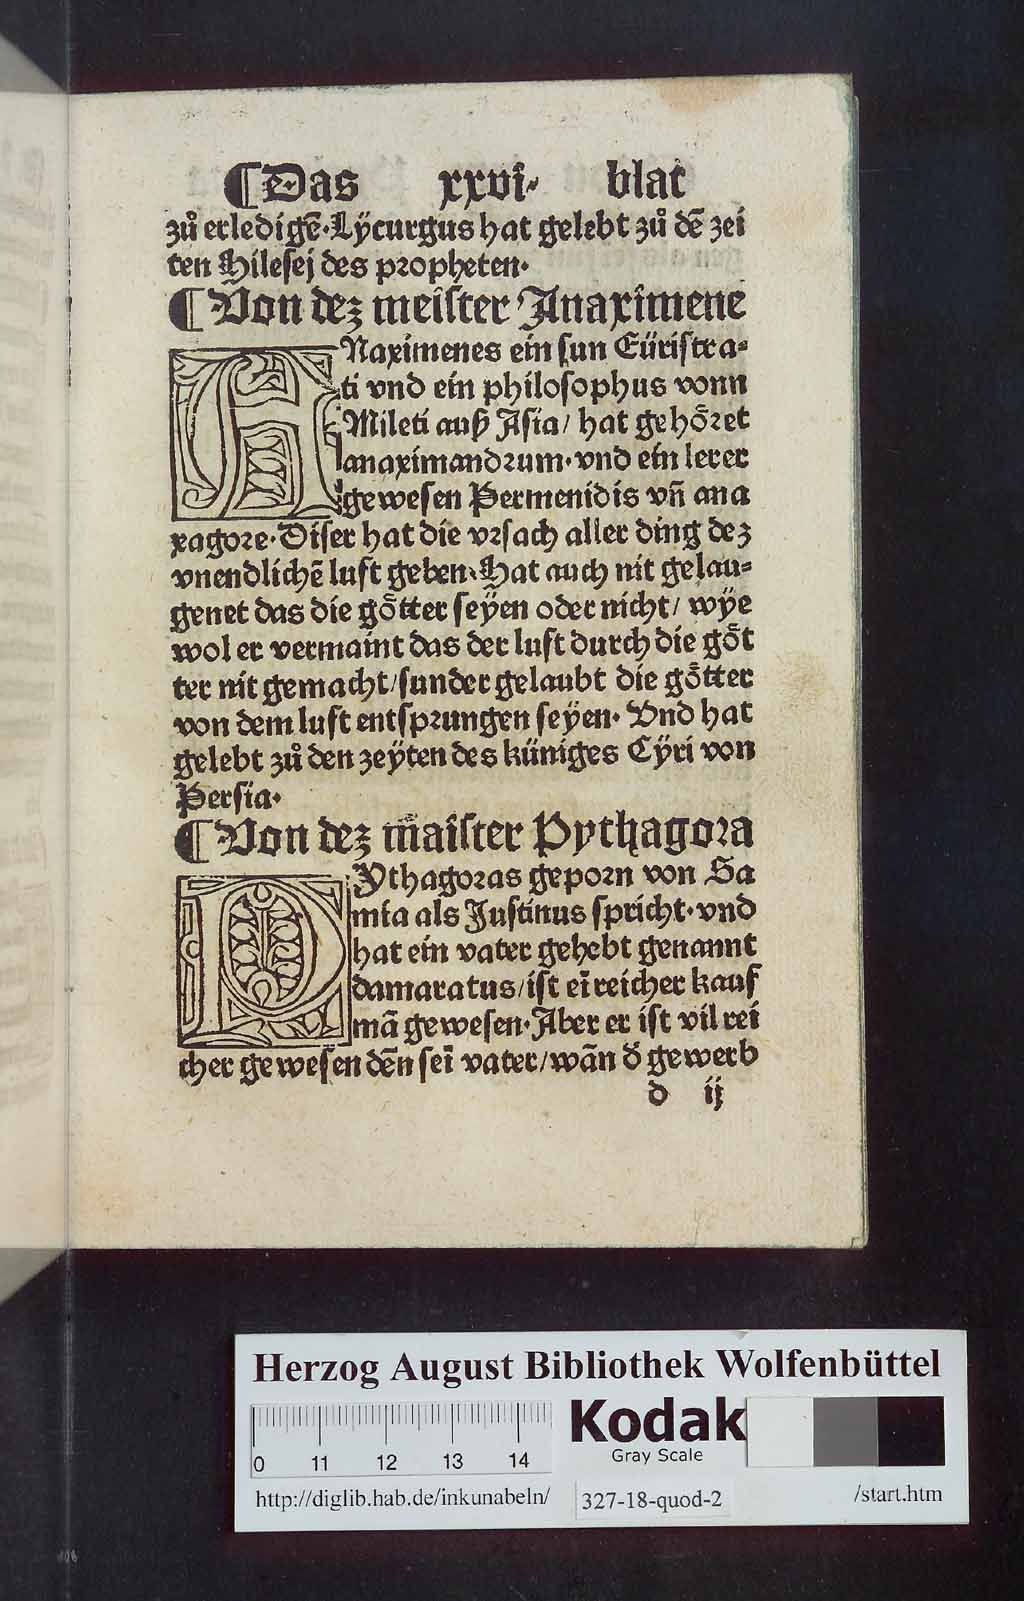 ¶ Das xxvi· blat
zů erledigē·Lÿcurgus hat gelebt zů dē zei
ten Hilesej des propheten·
¶ Von dez meister Anaximene
ANaximenes ein sun Eüristra⸗
ti vnd ein philosophus vonn
Mileti auß Asia/ hat gehöꝛet
anaximandꝛum·vnd ein lerer
gewesen Permenidis vn̄ ana
xagoꝛe·Diser hat die vꝛsach aller ding dez
vnendlichē luft geben·Hat auch nit gelau⸗
genet das die götter seÿen oder nicht/ wÿe
wol er vermaint das der luft durch die göt
ter nit gemacht/sunder gelaubt die götter
von dem luft entspꝛungen seÿen· Vnd hat
gelebt zů den zeÿten des küniges Cÿri von
Persia·
¶ Von dez maister Pythagoꝛa
PYthagoꝛas gepoꝛn von Sa
mia als Justinus spricht·vnd
hat ein vater gehebt genannt
damaratus/ist eī reicher kauf
mā gewesen·Aber er ist vil rei
cher gewesen dēn seī vater/wān d̄ gewerb
d ij
Herzog August Bibliothek Wolfenbüttel
0 11 12 13 14
Kodak
Gray Scale
http://diglib.hab.de/inkunabeln/ 327-18-quod-2 /start.htm